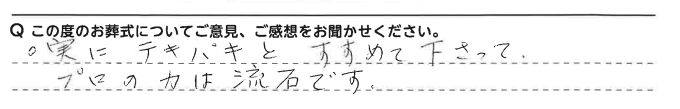 Q この度のお葬式についてご意見、ご感想をお聞かせください。
○実に テキパキと すすめて下さって.
プロの力は流石です.